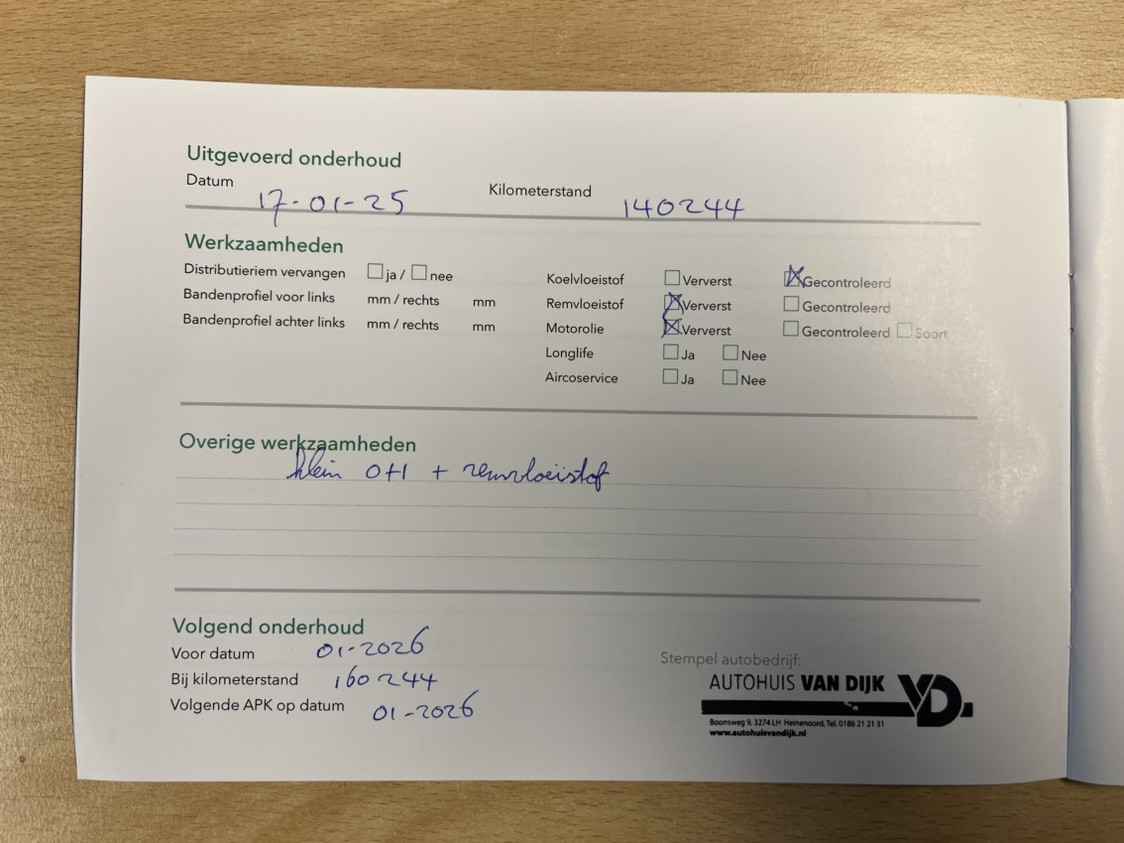 Uitgevoerd onderhoud
Datum 17-01-25 Kilometerstand 140244
Werkzaamheden
Distributieriem vervangen ja / nee
Bandenprofiel voor links mm / rechts mm
Bandenprofiel achter links mm / rechts mm
Koelvloeistof Ververst Gecontroleerd
Remvloeistof Ververst Gecontroleerd
Motorolie Ververst Gecontroleerd Soort
Longlife Ja Nee
Aircoservice Ja Nee
Overige werkzaamheden
klein OH + remvloeistof
Volgend onderhoud
Voor datum 01-2026
Bij kilometerstand 160244
Volgende APK op datum 01-2026
Stempel autobedrijf:
AUTOHUIS VAN DIJK VD.
Boomsweg 9, 3274 LH Heinenoord, Tel. 0186 21 21 31
www.autohuisvandijk.nl